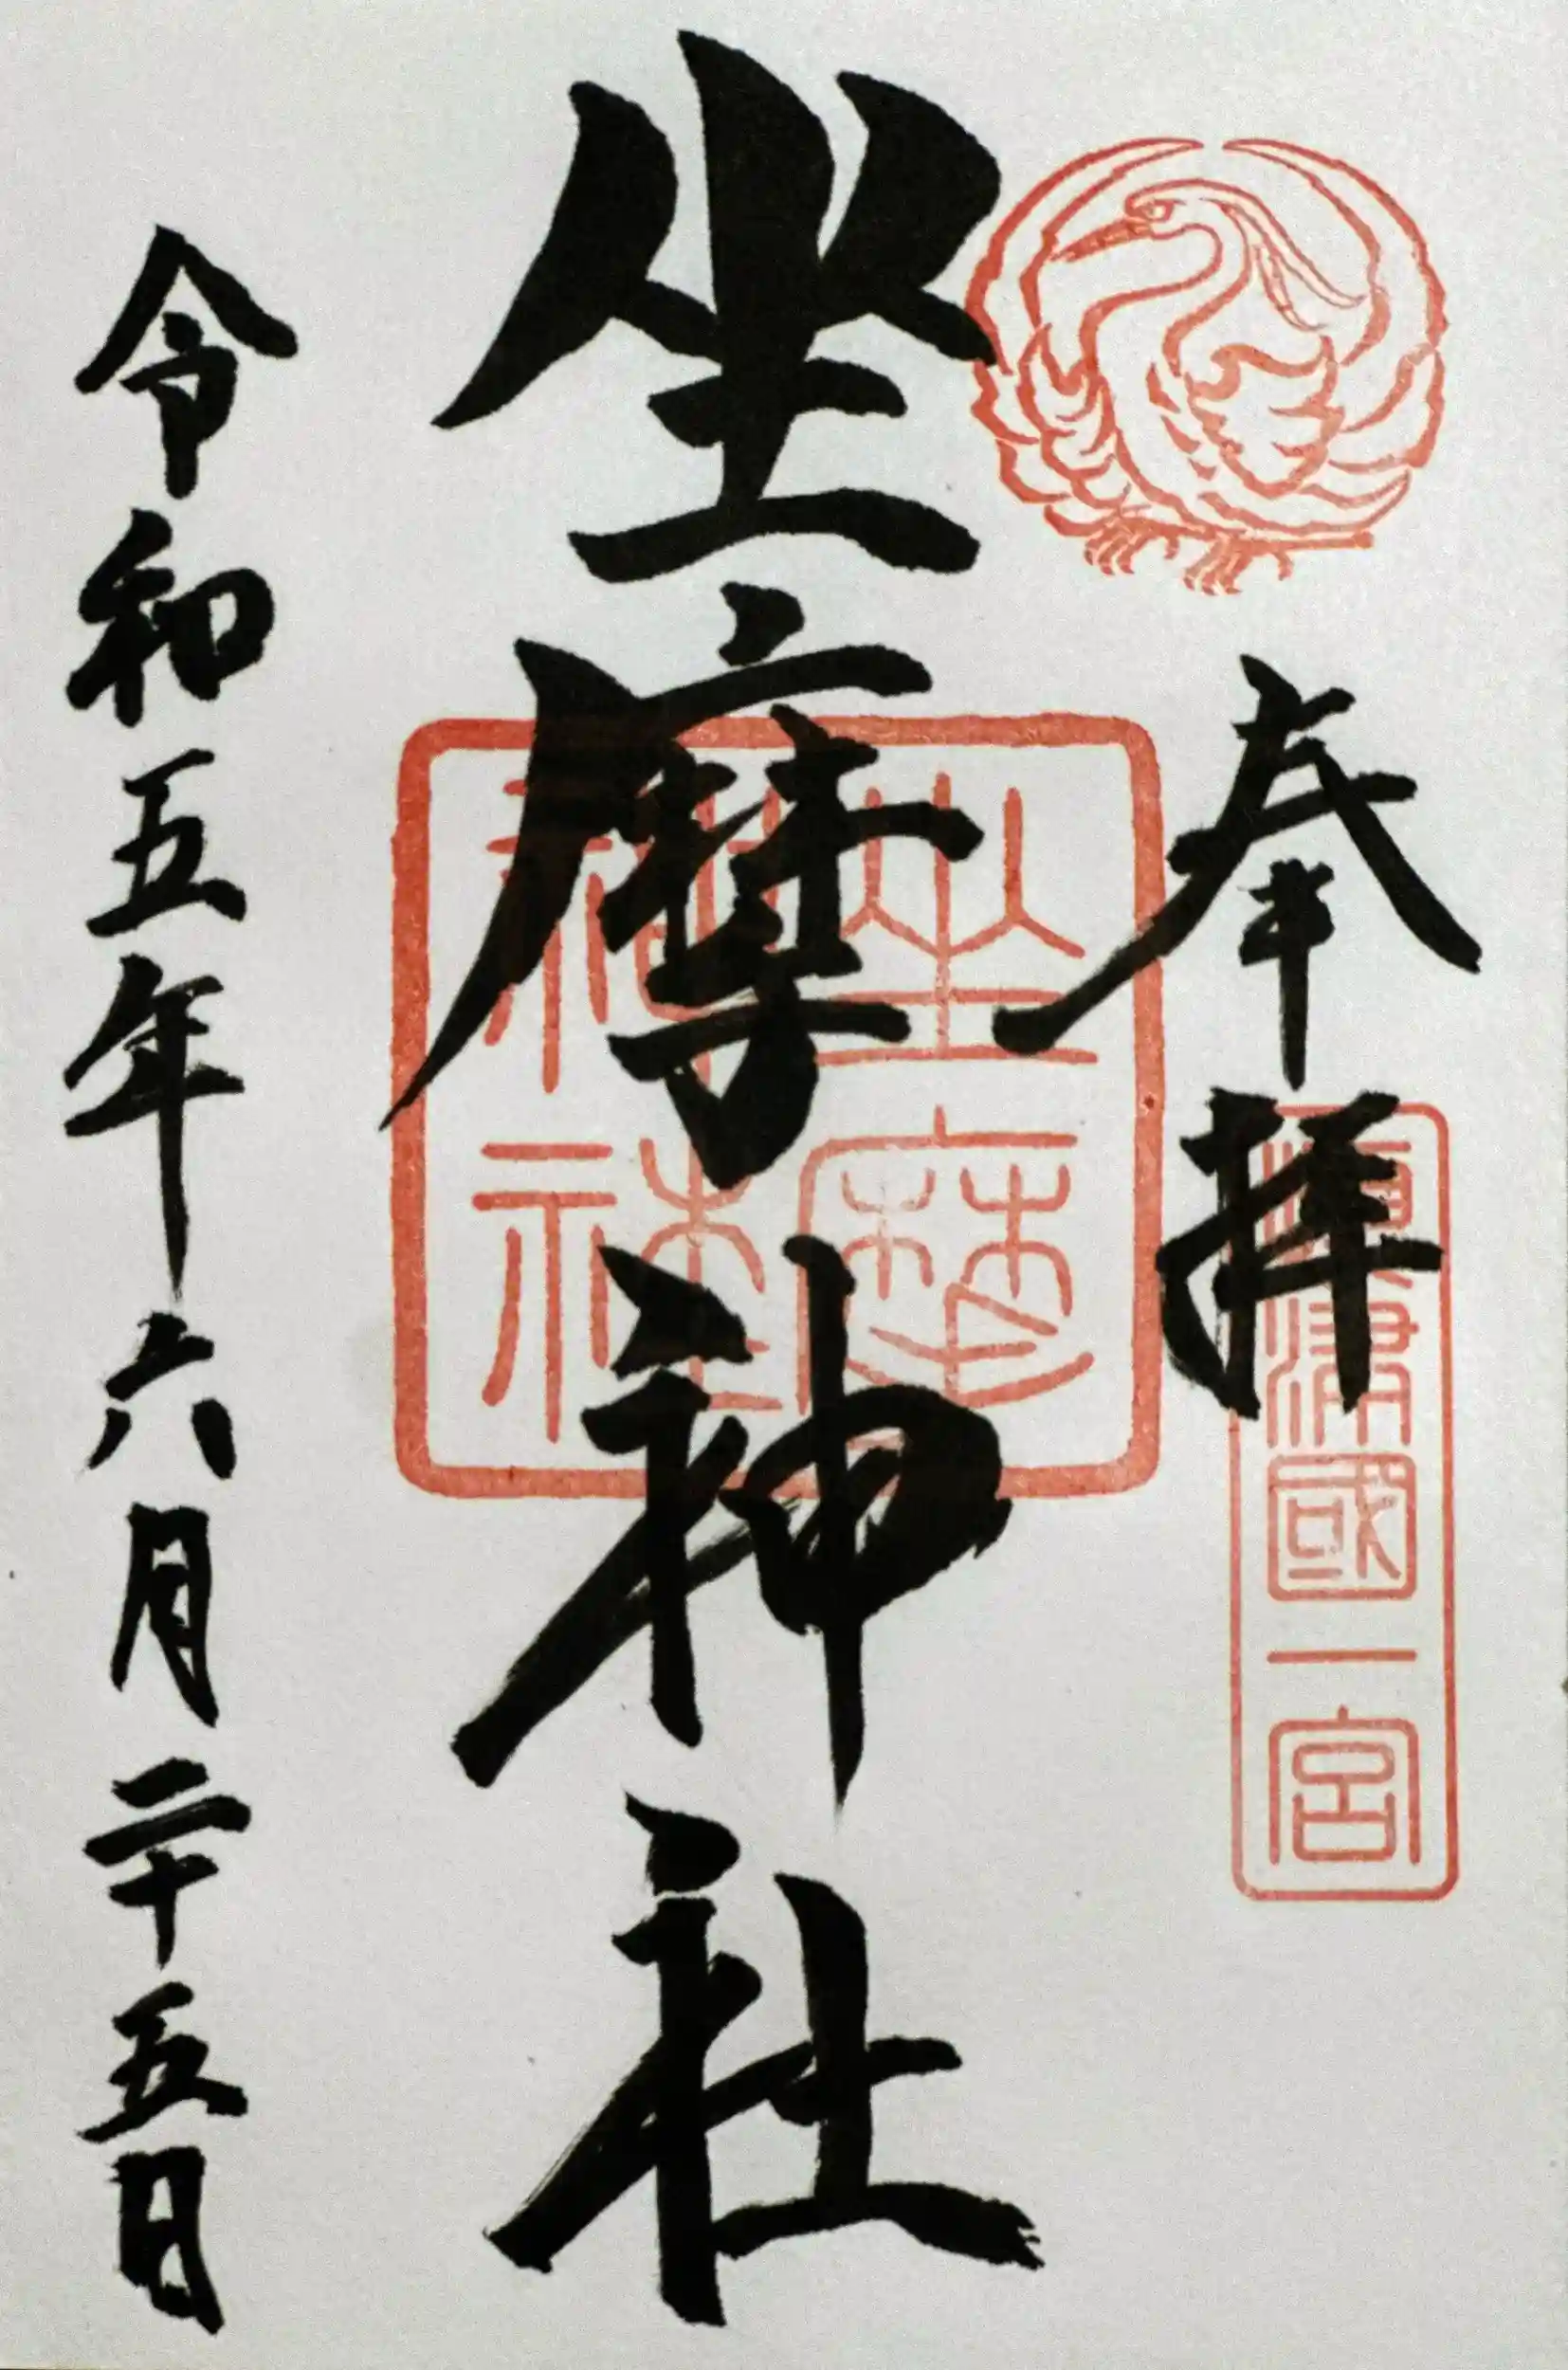 奉拝
攝津國一宮
坐摩神社
坐摩神社
令和五年六月二十五日